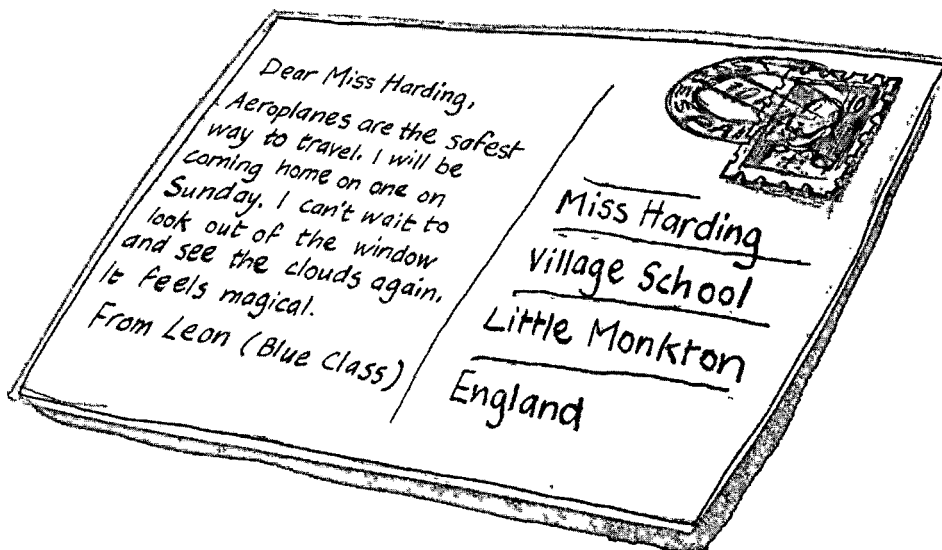 Dear Miss Harding,
Aeroplanes are the safest
way to travel. I will be
coming home on one on
Sunday. I can't wait to
look out of the window
and see the clouds again.
It feels magical.
From Leon (Blue Class)
Miss Harding
Village School
Little Monkton
England